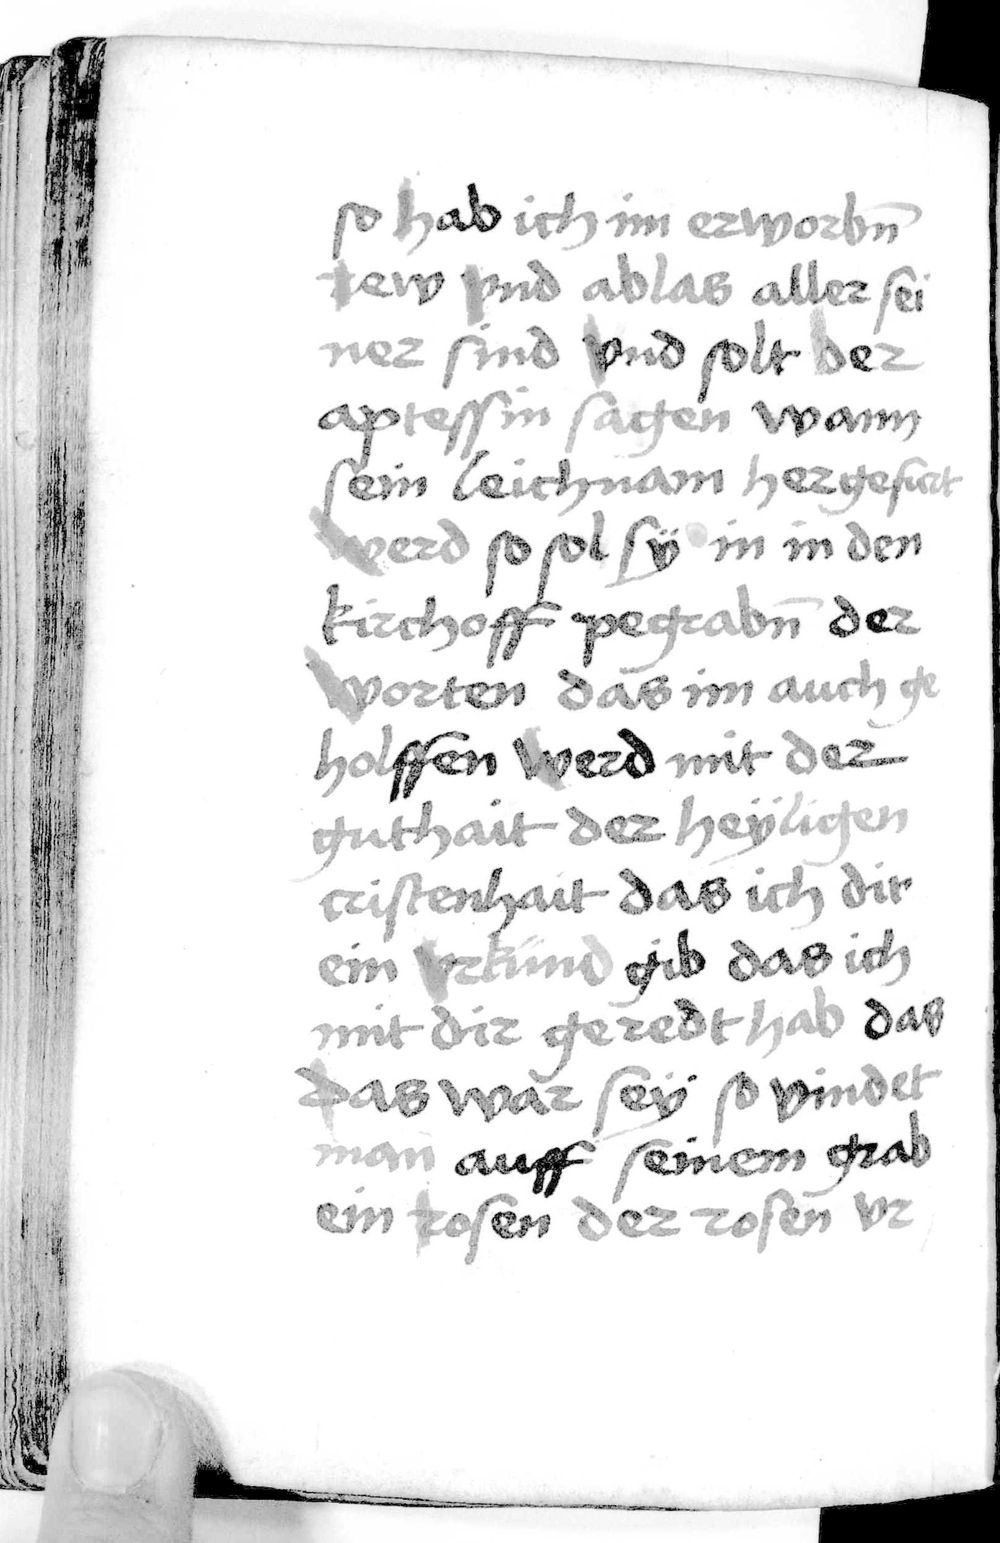 so hab ich im erworbn̄
rew vnd ablas aller sei
ner sind vnd solt der
aptessin sagen wann
sein leichnam hergefurt
werd so sol sÿ in in den
kirchoff pegrabn̄ der
worten das im auch ge
holffen werd mit der
guthait der heÿligen
cristenhait das ich dir
ein vrkünd gib das ich
mit dir geredt hab das
das war seÿ so vindet
man auff seinem grab
ein rosen der rosen̄ vr